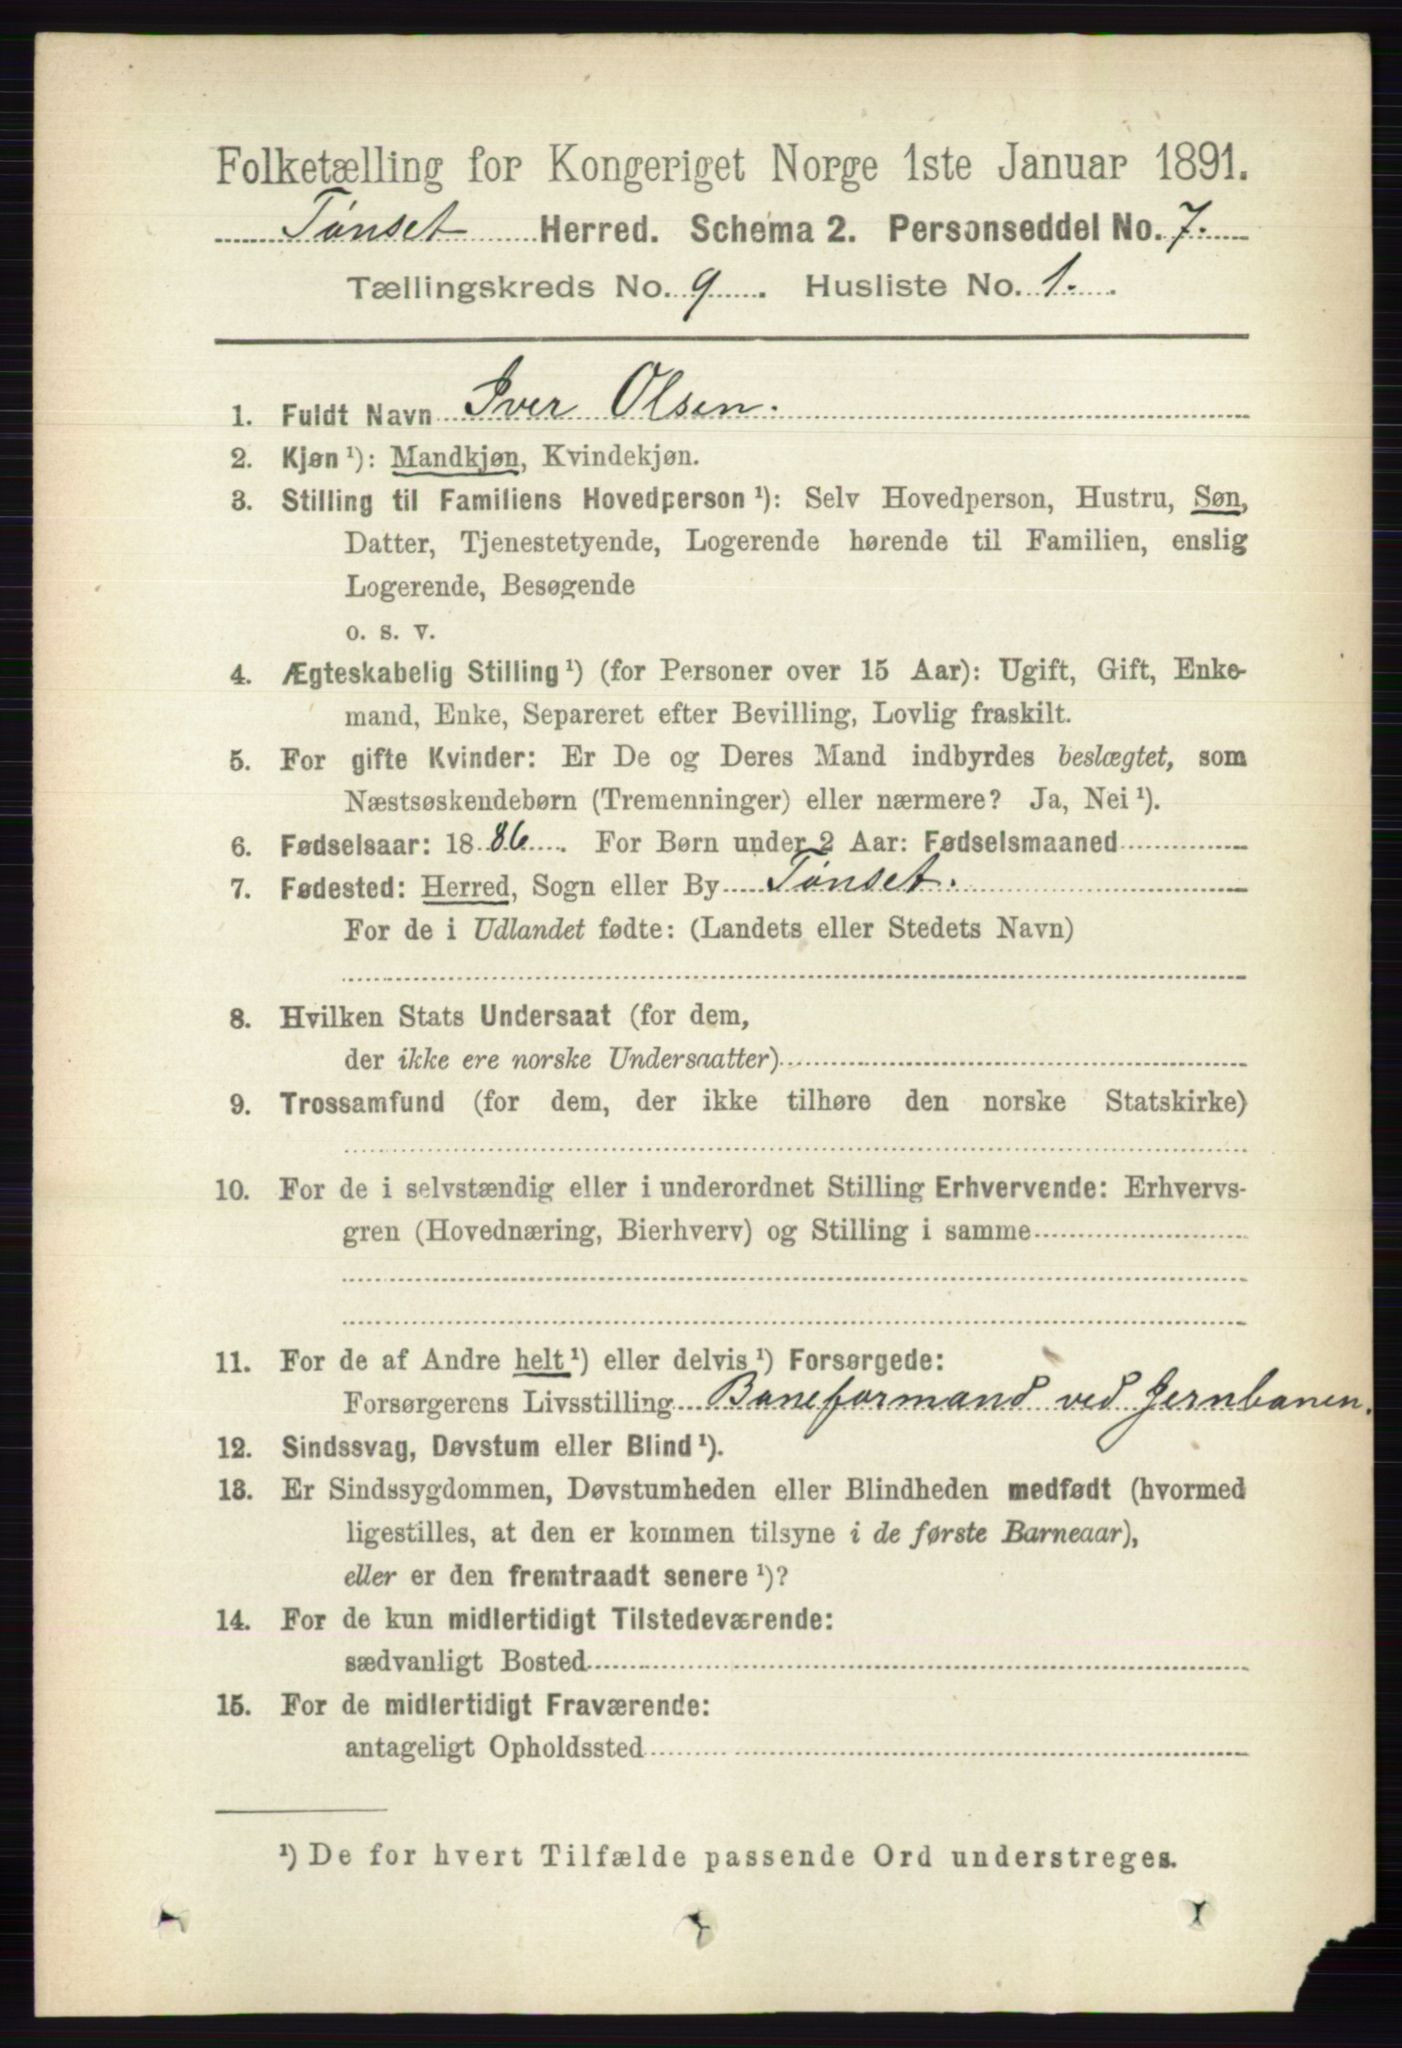 Folketælling for Kongeriget Norge 1ste Januar 1891.
Tønset Herred. Schema 2. Personseddel No. 7.
Tællingskreds No. 9. Husliste No. 1.
1. Fuldt Navn Iver Olsen.
2. Kjøn ¹): Mandkjøn, Kvindekjøn.
3. Stilling til Familiens Hovedperson ¹): Selv Hovedperson, Hustru, Søn,
Datter, Tjenestetyende, Logerende hørende til Familien, enslig
Logerende, Besøgende
o. s. v.
4. Ægteskabelig Stilling ¹) (for Personer over 15 Aar): Ugift, Gift, Enke-
mand, Enke, Separeret efter Bevilling, Lovlig fraskilt.
5. For gifte Kvinder: Er De og Deres Mand indbyrdes beslægtet, som
Næstsøskendebørn (Tremenninger) eller nærmere? Ja, Nei ¹).
6. Fødselsaar: 1886. For Børn under 2 Aar: Fødselsmaaned
7. Fødested: Herred, Sogn eller By Tønset.
For de i Udlandet fødte: (Landets eller Stedets Navn)
8. Hvilken Stats Undersaat (for dem,
der ikke ere norske Undersaatter)
9. Trossamfund (for dem, der ikke tilhøre den norske Statskirke)
10. For de i selvstændig eller i underordnet Stilling Erhvervende: Erhvervs-
gren (Hovednæring, Bierhverv) og Stilling i samme
11. For de af Andre helt ¹) eller delvis ¹) Forsørgede:
Forsørgerens Livsstilling Baneformand ved Jernbanen.
12. Sindssvag, Døvstum eller Blind ¹).
13. Er Sindssygdommen, Døvstumheden eller Blindheden medfødt (hvormed
ligestilles, at den er kommen tilsyne i de første Barneaar),
eller er den fremtraadt senere ¹)?
14. For de kun midlertidigt Tilstedeværende:
sædvanligt Bosted
15. For de midlertidigt Fraværende:
antageligt Opholdssted
¹) De for hvert Tilfælde passende Ord understreges.